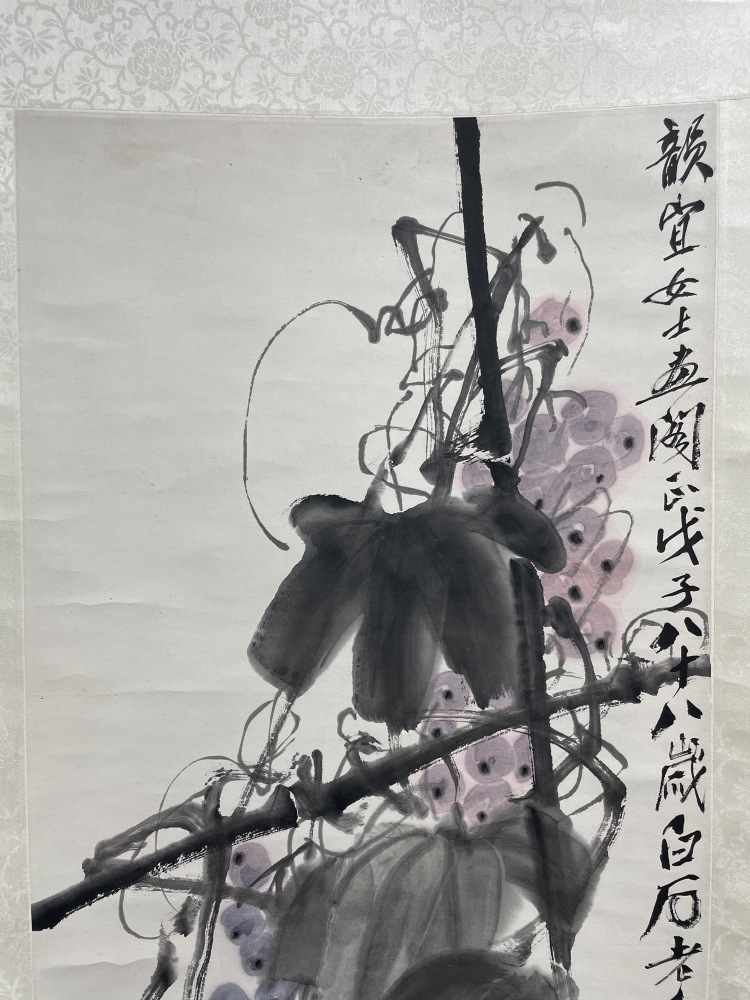 韻宜女士画阁正戊子八十八歲白石老